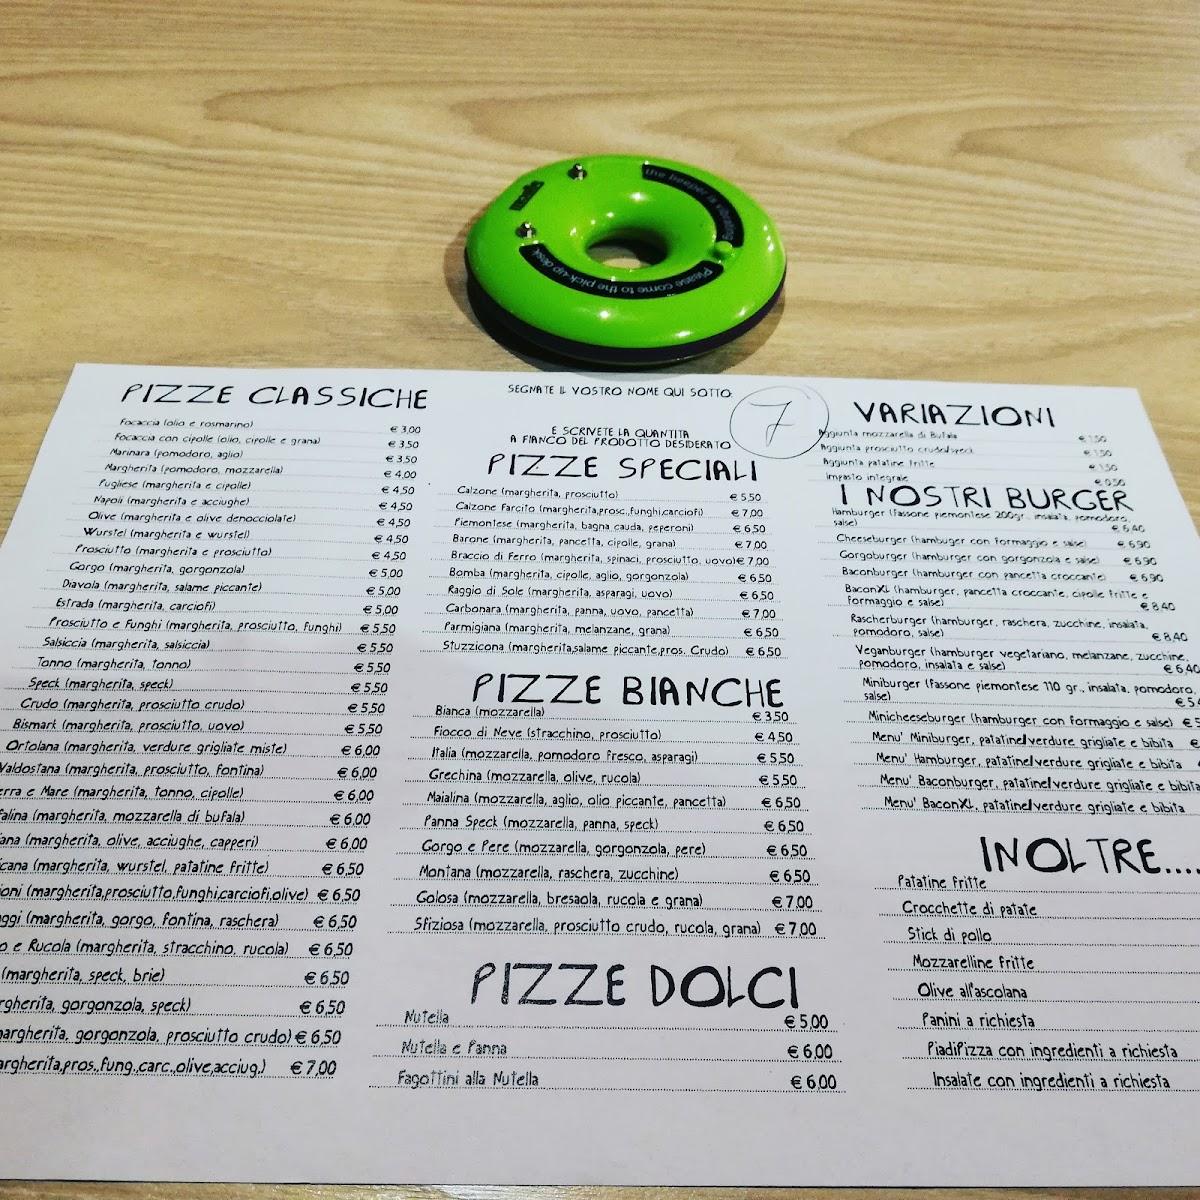 the beeper is vibrating
Please come to the pick-up desk
PIZZE CLASSICHE
Focaccia (olio e rosmarino) € 3,00
Focaccia con cipolle (olio, cipolle e grana) € 3,50
Marinara (pomodoro, aglio) € 3,50
Margherita (pomodoro, mozzarella) € 4,00
Pugliese (margherita e cipolle) € 4,50
Napoli (margherita e acciughe) € 4,50
Olive (margherita e olive denocciolate) € 4,50
Wurstel (margherita e wurstel) € 4,50
Prosciutto (margherita e prosciutto) € 4,50
Gorgo (margherita, gorgonzola) € 5,00
Diavola (margherita, salame piccante) € 5,00
Estrada (margherita, carciofi) € 5,00
Prosciutto e Funghi (margherita, prosciutto, funghi) € 5,50
Salsiccia (margherita, salsiccia) € 5,50
Tonno (margherita, tonno) € 5,50
Speck (margherita, speck) € 5,50
Crudo (margherita, prosciutto crudo) € 5,50
Bismark (margherita, prosciutto, uovo) € 5,50
Ortolana (margherita, verdure grigliate miste) € 6,00
Valdostana (margherita, prosciutto, fontina) € 6,00
erra e Mare (margherita, tonno, cipolle) € 6,00
falina (margherita, mozzarella di bufala) € 6,00
iana (margherita, olive, acciughe, capperi) € 6,00
icana (margherita, wurstel, patatine fritte) € 6,50
ioni (margherita,prosciutto,funghi,carciofi,olive) € 6,50
aggi (margherita, gorgo, fontina, raschera) € 6,50
o e Rucola (margherita, stracchino, rucola) € 6,50
(margherita, speck, brie) € 6,50
rgherita, gorgonzola, speck) € 6,50
margherita, gorgonzola, prosciutto crudo) € 6,50
argherita,pros.,fung.,carc.,olive,acciug.) € 7,00
SEGNATE IL VOSTRO NOME QUI SOTTO:
7
E SCRIVETE LA QUANTITA
A FIANCO DEL PRODOTTO DESIDERATO
PIZZE SPECIALI
Calzone (margherita, prosciutto) € 5,50
Calzone Farcito (margherita,prosc.,funghi,carciofi) € 7,00
Piemontese (margherita, bagna cauda, peperoni) € 6,50
Barone (margherita, pancetta, cipolle, grana) € 7,00
Braccio di Ferro (margherita, spinaci, prosciutto, uovo) € 7,00
Bomba (margherita, cipolle, aglio, gorgonzola) € 6,50
Raggio di Sole (margherita, asparagi, uovo) € 6,50
Carbonara (margherita, panna, uovo, pancetta) € 7,00
Parmigiana (margherita, melanzane, grana) € 6,50
Stuzzicona (margherita,salame piccante,pros. Crudo) € 6,50
PIZZE BIANCHE
Bianca (mozzarella) € 3,50
Fiocco di Neve (stracchino, prosciutto) € 4,50
Italia (mozzarella, pomodoro fresco, asparagi) € 5,50
Grechina (mozzarella, olive, rucola) € 5,50
Maialina (mozzarella, aglio, olio piccante, pancetta) € 6,50
Panna Speck (mozzarella, panna, speck) € 6,50
Gorgo e Pere (mozzarella, gorgonzola, pere) € 6,50
Montana (mozzarella, raschera, zucchine) € 6,50
Golosa (mozzarella, bresaola, rucola e grana) € 7,00
Sfiziosa (mozzarella, prosciutto crudo, rucola, grana) € 7,00
PIZZE DOLCI
Nutella € 5,00
Nutella e Panna € 6,00
Fagottini alla Nutella € 6,00
VARIAZIONI
Aggiunta mozzarella di Bufala € 1,50
Aggiunta prosciutto crudo/speck € 1,50
Aggiunta patatine fritte € 1,50
Impasto integrale € 0,50
I NOSTRI BURGER
Hamburger (fassone piemontese 200gr., insalata, pomodoro,
salse) € 6,40
Cheeseburger (hambuger con formaggio e salse) € 6,90
Gorgoburger (hamburger con gorgonzola e salse) € 6,90
Baconburger (hamburger con pancetta croccante) € 6,90
BaconXL (hamburger, pancetta croccante, cipolle fritte e
formaggio e salse) € 8,40
Rascherburger (hamburger, raschera, zucchine, insalata,
pomodoro, salse) € 8,40
Veganburger (hamburger vegetariano, melanzane, zucchine,
pomodoro, insalata e salse) € 6,40
Miniburger (fassone piemontese 110 gr., insalata, pomodoro,
salse) € 5,4
Minicheeseburger (hamburger con formaggio e salse) € 5
Menu' Miniburger, patatine/verdure grigliate e bibita €
Menu' Hamburger, patatine/verdure grigliate e bibita
Menu' Baconburger, patatine/verdure grigliate e bibita
Menu' BaconXL, patatine/verdure grigliate e bibita
INOLTRE....
Patatine fritte
Crocchette di patate
Stick di pollo
Mozzarelline fritte
Olive all'ascolana
Panini a richiesta
PiadiPizza con ingredienti a richiesta
Insalate con ingredienti a richiesta